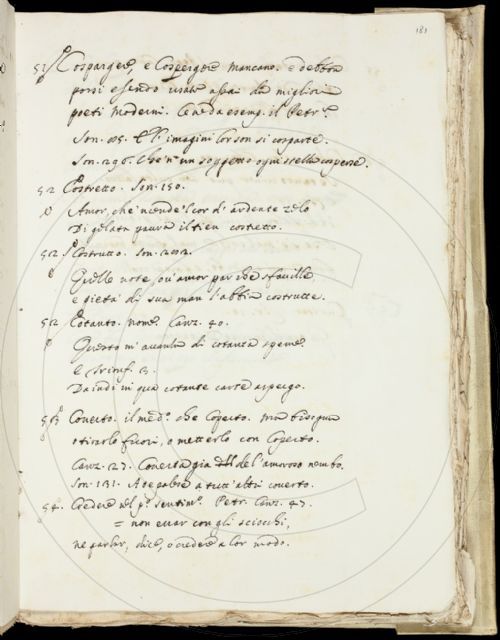 181
51 Cospargere, e Cospergere mancano. e debbon
porsi essendo usate assai da migliori
poeti moderni. Ce ne dà esemp. il Petr.
Son. E l'imagini lor son sì cosparte.
Son. 296. Che 'n un soggetto ogni stella cosperse.
52 Costretto. Son. 150.
Amor, che 'ncende 'l cor d'ardente zelo
Di gelata paura il tien costretto.
52 Costrutto. Son.
Quelle note ov' amor par che sfaville,
e pietà di sua man l'abbia costrutte.
52 Cotanto. nome. Canz. 40.
Questo m'avanza di cotanta speme
e Trionf.
Da indi in qua cotante carte aspergo.
53 Coverto. il med.º che Coperto. ma bisogna
o tirarlo fuori, o metterlo con Coperto.
Canz. 27. Coverta già del l'amoroso nembo.
Son. 131. A te palese a tutt'altri coverto.
54. Credere nel p.º sentim.º Petr. Canz. 47.
= non errar con gli sciocchi,
ne parlar, dice, o credere a lor modo.